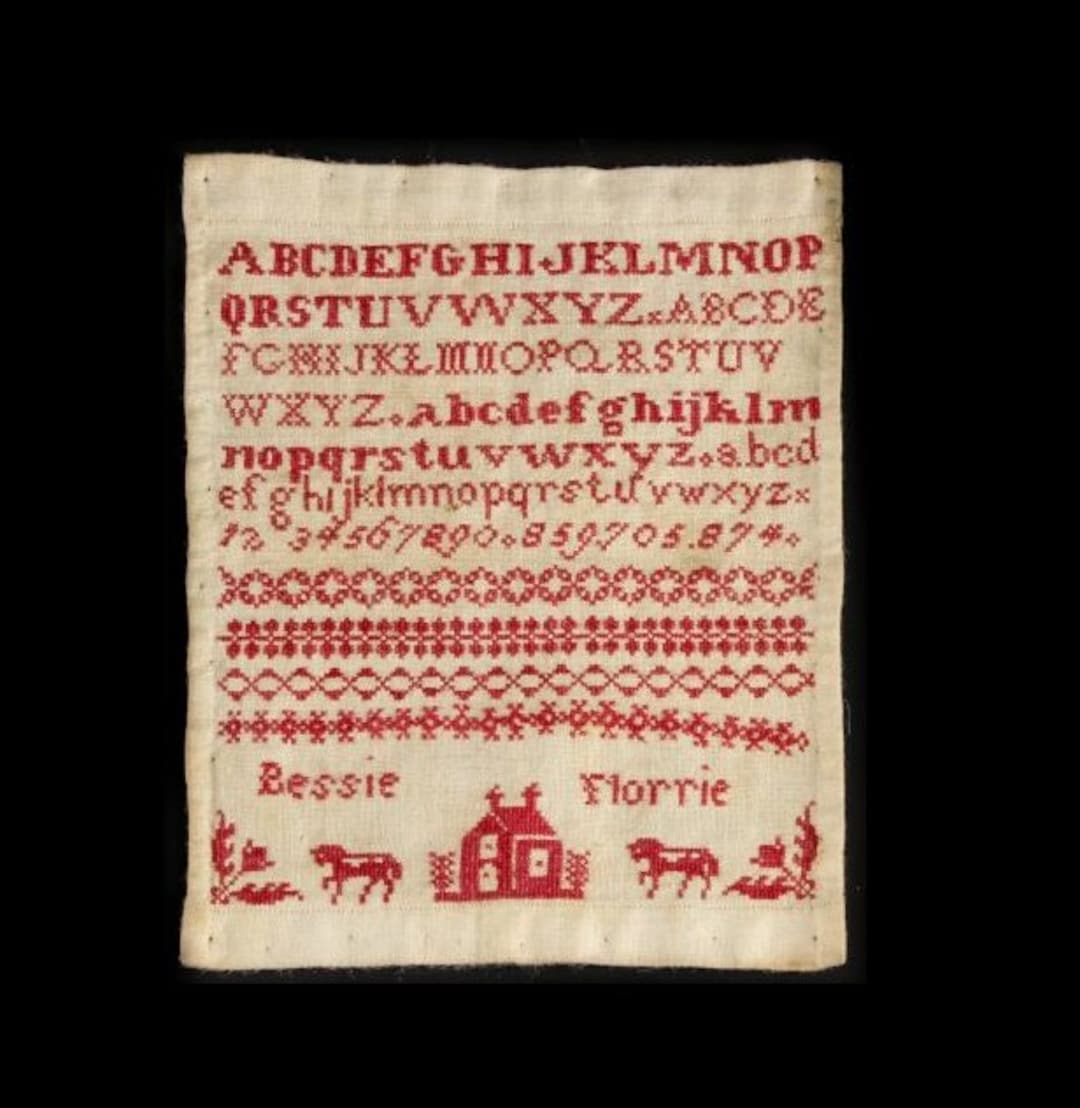 ABCDEFGHIJKLMNOP
QRSTUVWXYZ ABCDE
FGHIJKLMNOPQRSTUV
WXYZ abcdefghijklm
nopqrstuvwxyz abcd
efghijklmnopqrstuvwxyz
1234567890 859705.874
Bessie Florrie